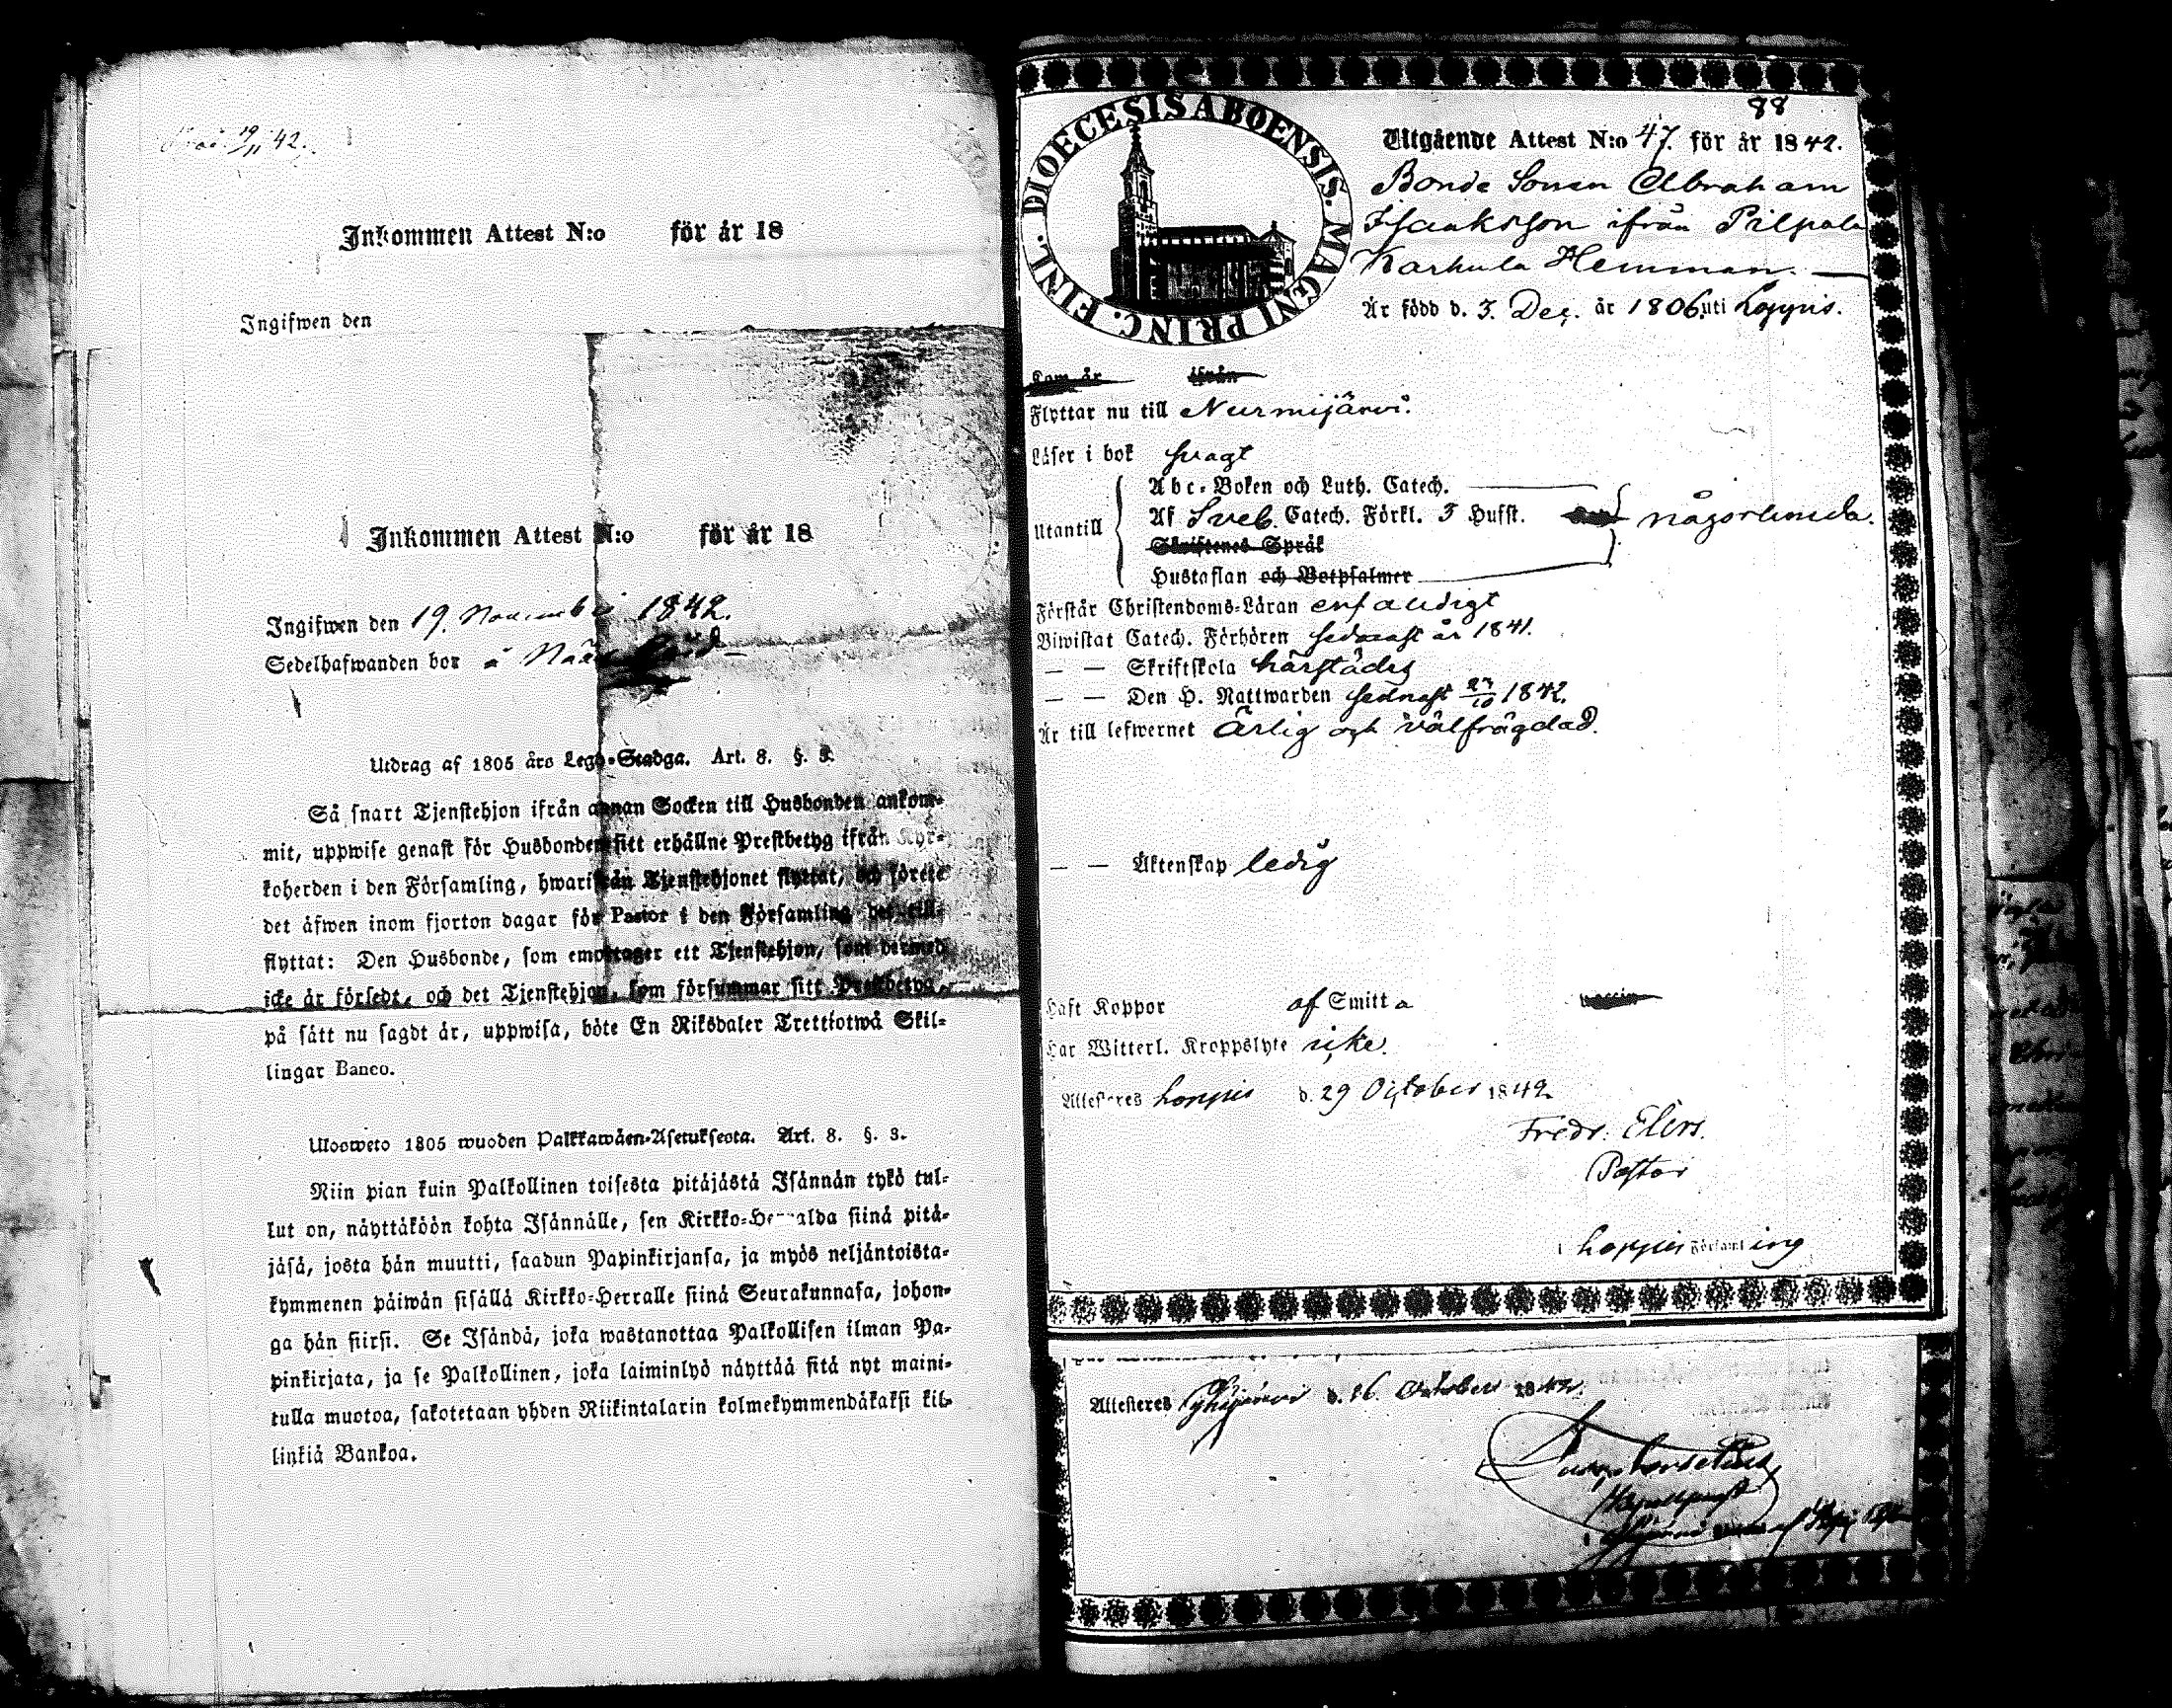 19/11 42.
Inkommen Attest N:o för år 18
Ingifwen den
Inkommen Attest N:o för år 18
Ingifwen den 19. November 1842.
Sedelhafwanden bor å
Utdrag af 1805 års Lego-Stadga. Art. 8. §. 3.
Så snart Tjenstehjon ifrån annan Socken till Husbonden ankom-
mit, uppwise genast för Husbonden sitt erhållne Prestbetyg ifrån Kyr-
koherden i den Församling, hwarifrån Tjenstehjonet flyttat, och förete
det äfwen inom fjorton dagar för Pastor i den Församling det till-
flyttat: Den Husbonde, som emottager ett Tjenstehjon, som dermed
icke är försedt, och det Tjenstehjon, som försummar sitt Prestbetyg,
på sätt nu sagdt är, uppwisa, böte En Riksdaler Trettiotwå Skil-
lingar Banco.
Ulosweto 1805 wuoden Palkkawäen-Asetuksesta. Art. 8. §. 3.
Niin pian kuin Palkollinen toisesta pitäjästä Isännän tykö tul-
lut on, näyttäköön kohta Isännälle, sen Kirkko-Herralda siinä pitä-
jäsä, josta hän muutti, saadun Papinkirjansa, ja myös neljäntoista-
kymmenen päiwän sisällä Kirkko-Herralle siinä Seurakunnasa, johon-
ga hän siirsi. Se Isändä, joka wastanottaa Palkollisen ilman Pa-
pinkirjata, ja se Palkollinen, joka laiminlyö näyttää sitä nyt maini-
tulla muotoa, sakotetaan yhden Riikintalarin kolmekymmendäkaksi kil-
linkiä Bankoa.
88
DIOECESIS ABOENSIS. MAGNI PRINC. FINL.
Utgående Attest N:o 47. för år 1842.
Bonde Sonen Abraham
Isaaksson ifrån Pilpala
Karhula Hemman.
Är född d. 3. Dec. år 1806. uti Loppis.
Kom år ifrån
Flyttar nu till Nurmijärvi.
Läser i bok svagt
Utantill
Abc-Boken och Luth. Catech.
Af Sveb. Catech. Förkl. 3 Hufst. någorlunda.
Skriftenes Språk
Hustaflan och Botpsalmer
Förstår Christendoms-Läran enfaldigt
Biwistat Catech. Förhören sednast år 1841.
— — Skriftskola härstädes
— — Den H. Nattwarden sednast 23/10 1842.
Är till lefwernet Ärlig och välfrägdad.
— — Äktenskap ledig
Haft Koppor af Smitta
Har Witterl. Kroppslyte icke.
Attesteres Loppis d. 29 October 1842
Fredr. Elers.
Pastor
i Loppis Församling
Attesteres d. 26 October 1842.